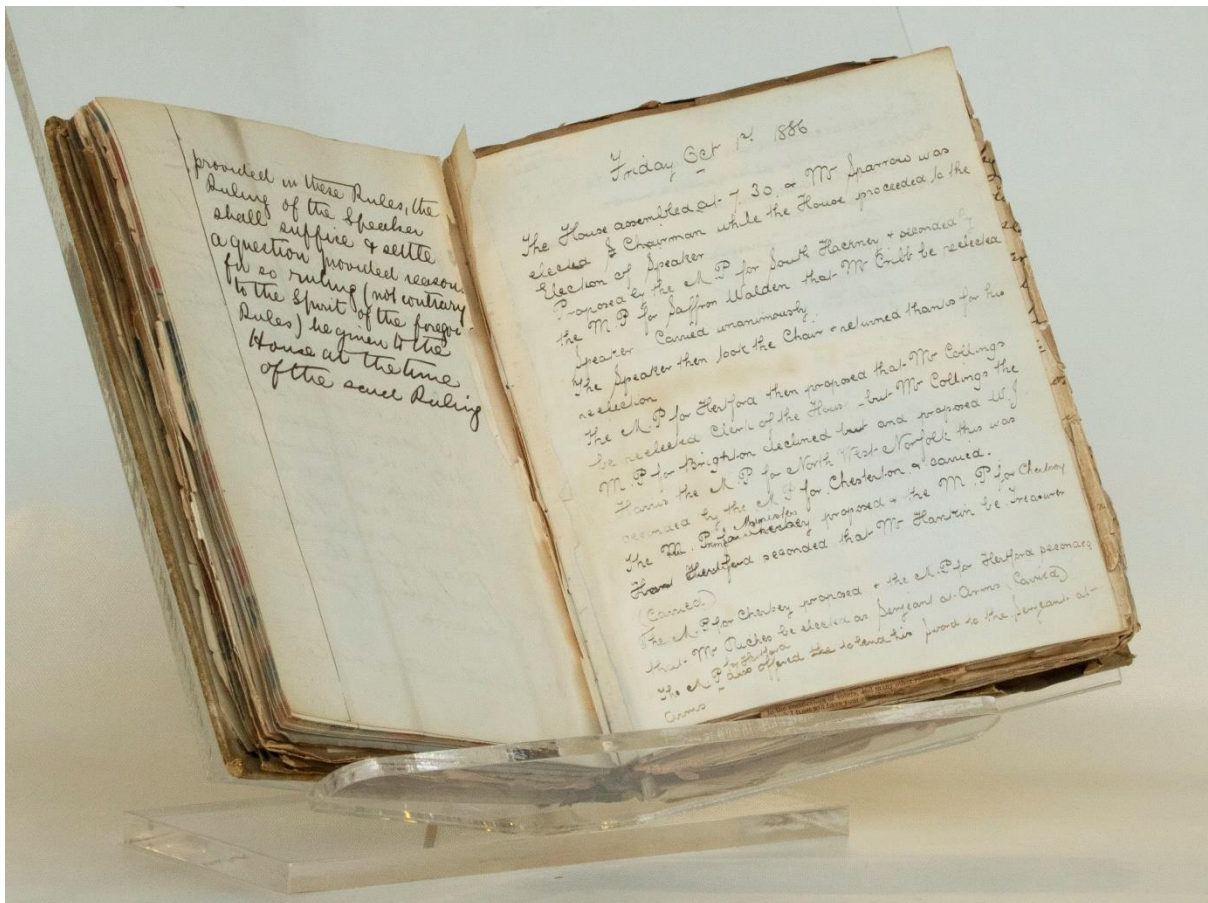 provided in these Rules, the
Ruling of the Speaker
shall suffice & settle
a question provided reason
for so ruling (not contrary
to the Spirit of the forego
Rules) be given to the
House at the time
of the said Ruling
Friday Oct 1st 1886
The House assembled at 7.30, & Mr Sparrow was
elected Chairman while the House proceeded to the
Election of Speaker
Proposed by the M.P for South Hackney & seconded by
the M.P for Saffron Walden that Mr Cribb be reelected
Speaker. Carried unanimously
The Speaker then took the Chair & returned thanks for his
reelection
The M.P for Hertford then proposed that Mr Collings
be reelected Clerk of the House but Mr Collings the
M.P for Brighton declined and proposed W.J.
Harris the M.P for North West Norfolk this was
seconded by the M.P for Chesterton & carried.
The Minister proposed & the M.P for Chertsey
seconded that Mr Hankin be Treasurer
(Carried.)
The M.P for Chertsey proposed & the M.P for Hertford seconded
that Mr Riches be elected as Serjeant at Arms (Carried)
for Hertford
The M.P also offered to lend his sword to the Serjeant at
Arms